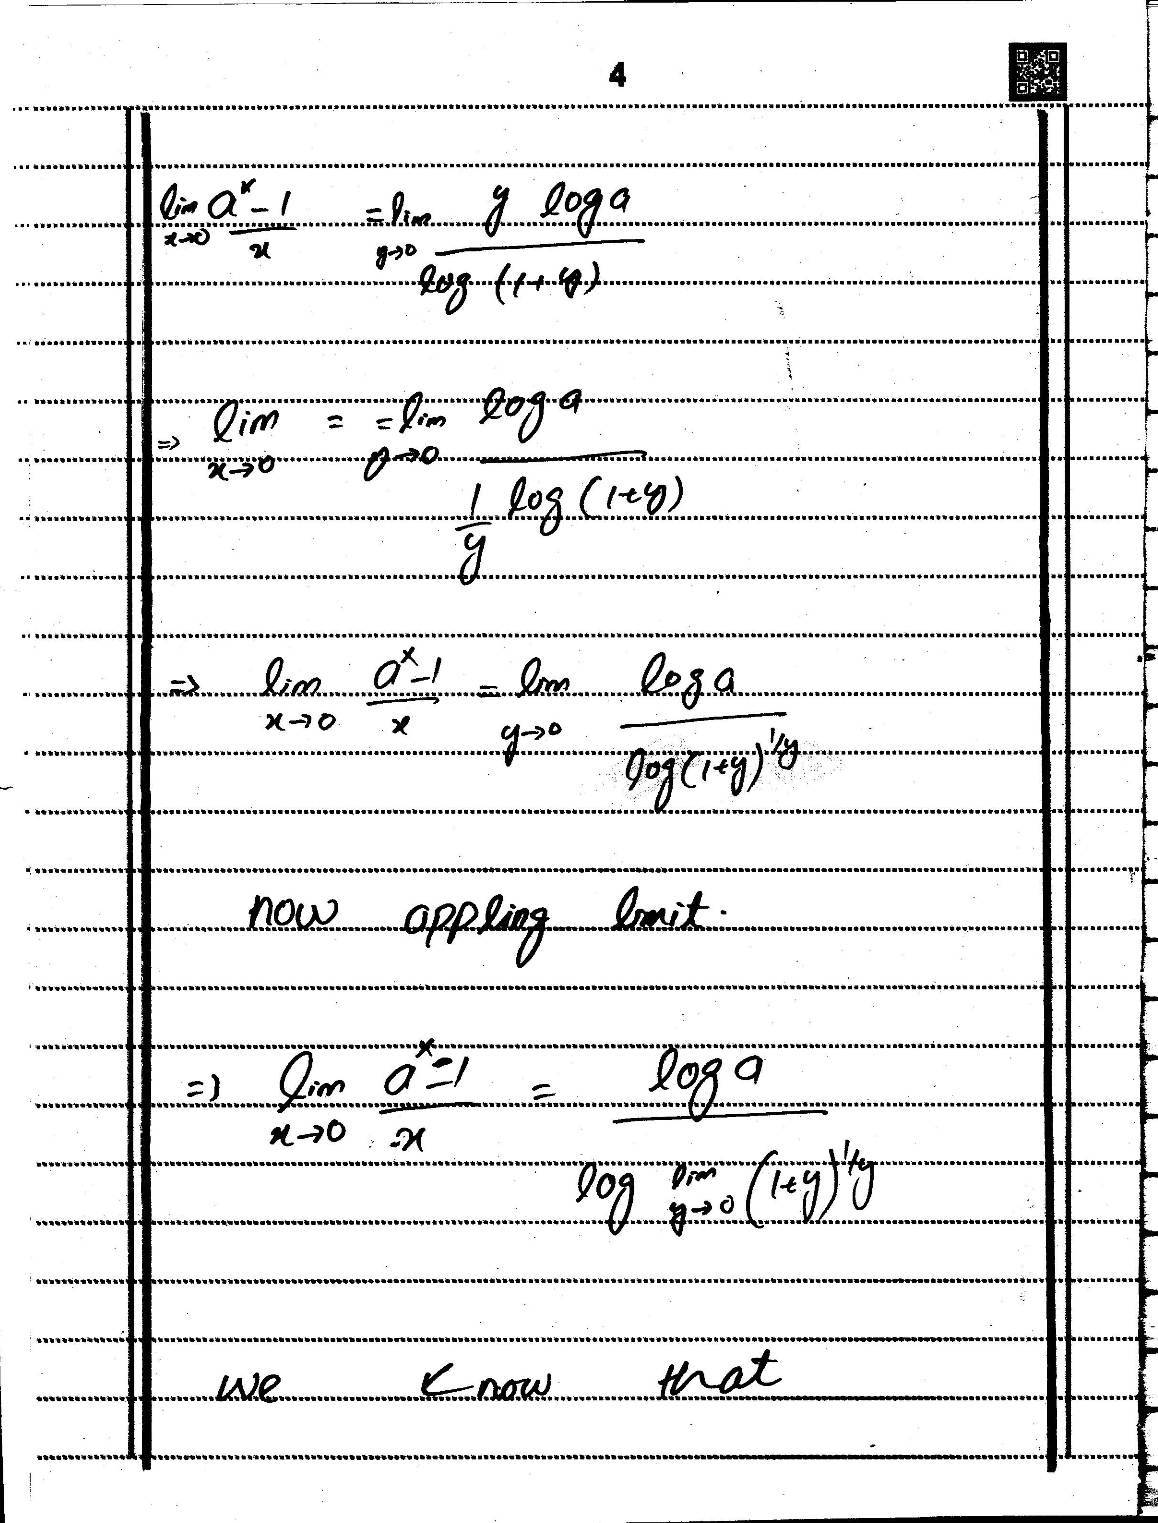 4
lim x→0 a^x - 1 / x = lim y→0 y log a / log (1+y)
⇒ lim x→0 = = lim y→0 log a / 1/y log (1+y)
⇒ lim x→0 a^x - 1 / x = lim y→0 log a / log (1+y)^1/y
now appling limit.
⇒ lim x→0 a^x - 1 / x = log a / log lim y→0 (1+y)^1/y
we know that